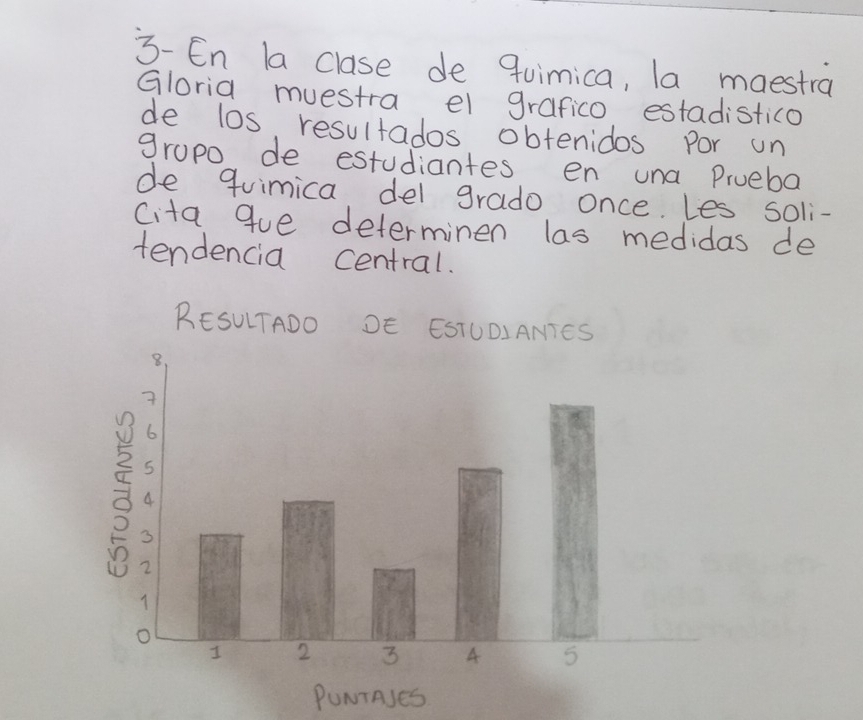 3- En la clase de quimica, la maestra
Gloria muestra el grafico estadistico
de los resultados obtenidos por un
grupo de estudiantes en una Prueba
de quimica del grado once. Les soli-
cita que determinen las medidas de
tendencia central.
RESULTADO DE ESTUDIANTES
ESTUDIANTES
8
7
6
5
4
3
2
1
0
1 2 3 4 5
PUNTAJES